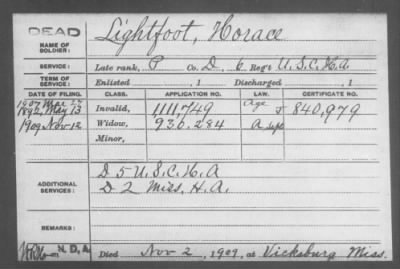 DEAD
Lightfoot, Horace
NAME OF SOLDIER:
SERVICE: Late rank, P Co. D, 6 Reg't U.S.C.H.A
TERM OF SERVICE: Enlisted , 1 Discharged , 1
DATE OF FILING. CLASS. APPLICATION NO. LAW. CERTIFICATE NO.
1907 Mar 27 Age
1892, May 13 Invalid, 1111,749 J 840,979
1909 Nov 12 Widow, 930.284 A
Minor,
ADDITIONAL SERVICES:
D 5 U.S.C.H.A
D 2 Miss, H.A.
REMARKS:
N.D.A. Died Nov 2, 1909, at Vicksburg Miss.